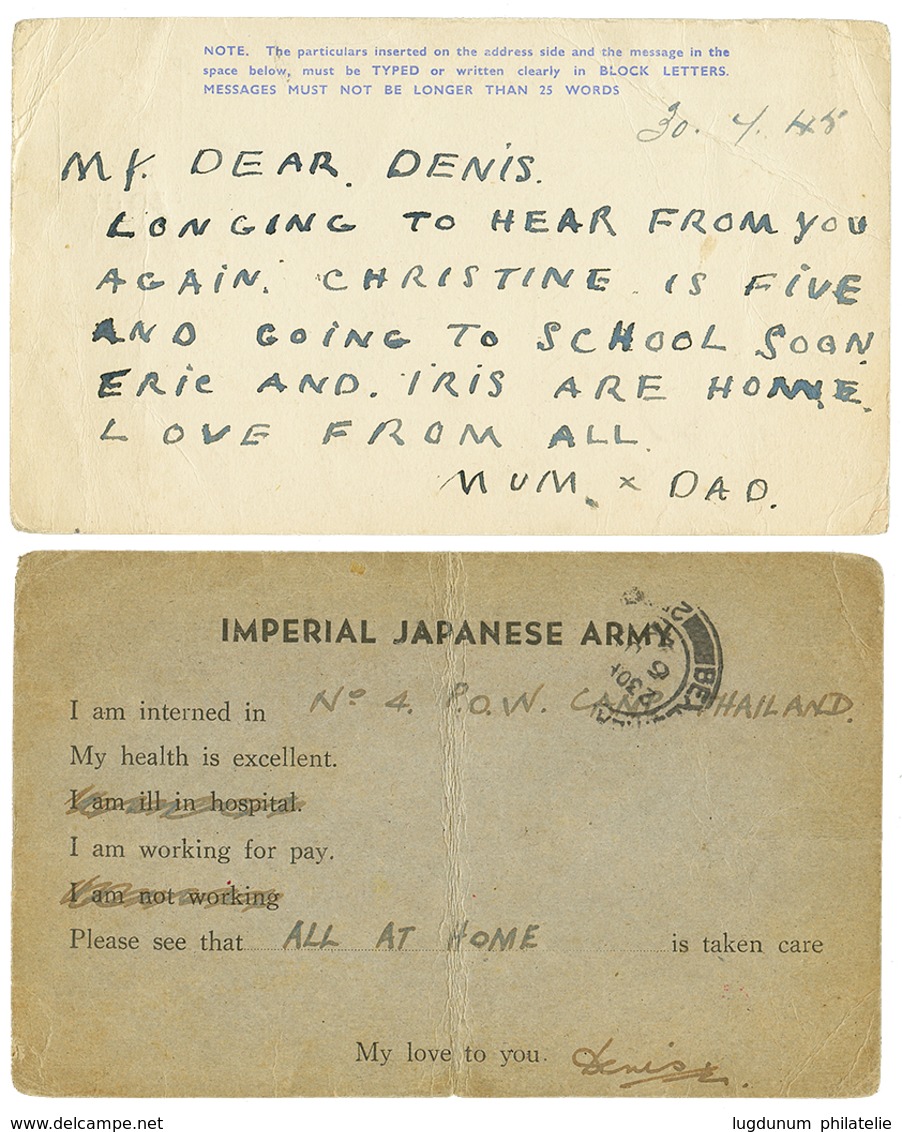 NOTE. The particulars inserted on the address side and the message in the
space below, must be TYPED or written clearly in BLOCK LETTERS.
MESSAGES MUST NOT BE LONGER THAN 25 WORDS
30. 4. 45
MY. DEAR. DENIS.
LONGING TO HEAR FROM YOU
AGAIN. CHRISTINE IS FIVE
AND GOING TO SCHOOL SOON
ERIC AND. IRIS ARE HOME.
LOVE FROM ALL.
MUM. x DAD.
IMPERIAL JAPANESE ARMY
I am interned in No 4. P.O.W. CAMP THAILAND.
My health is excellent.
I am ill in hospital.
I am working for pay.
I am not working
Please see that ALL AT HOME is taken care
My love to you. Denis x.
www.delcampe.net
lugdunum philatelie